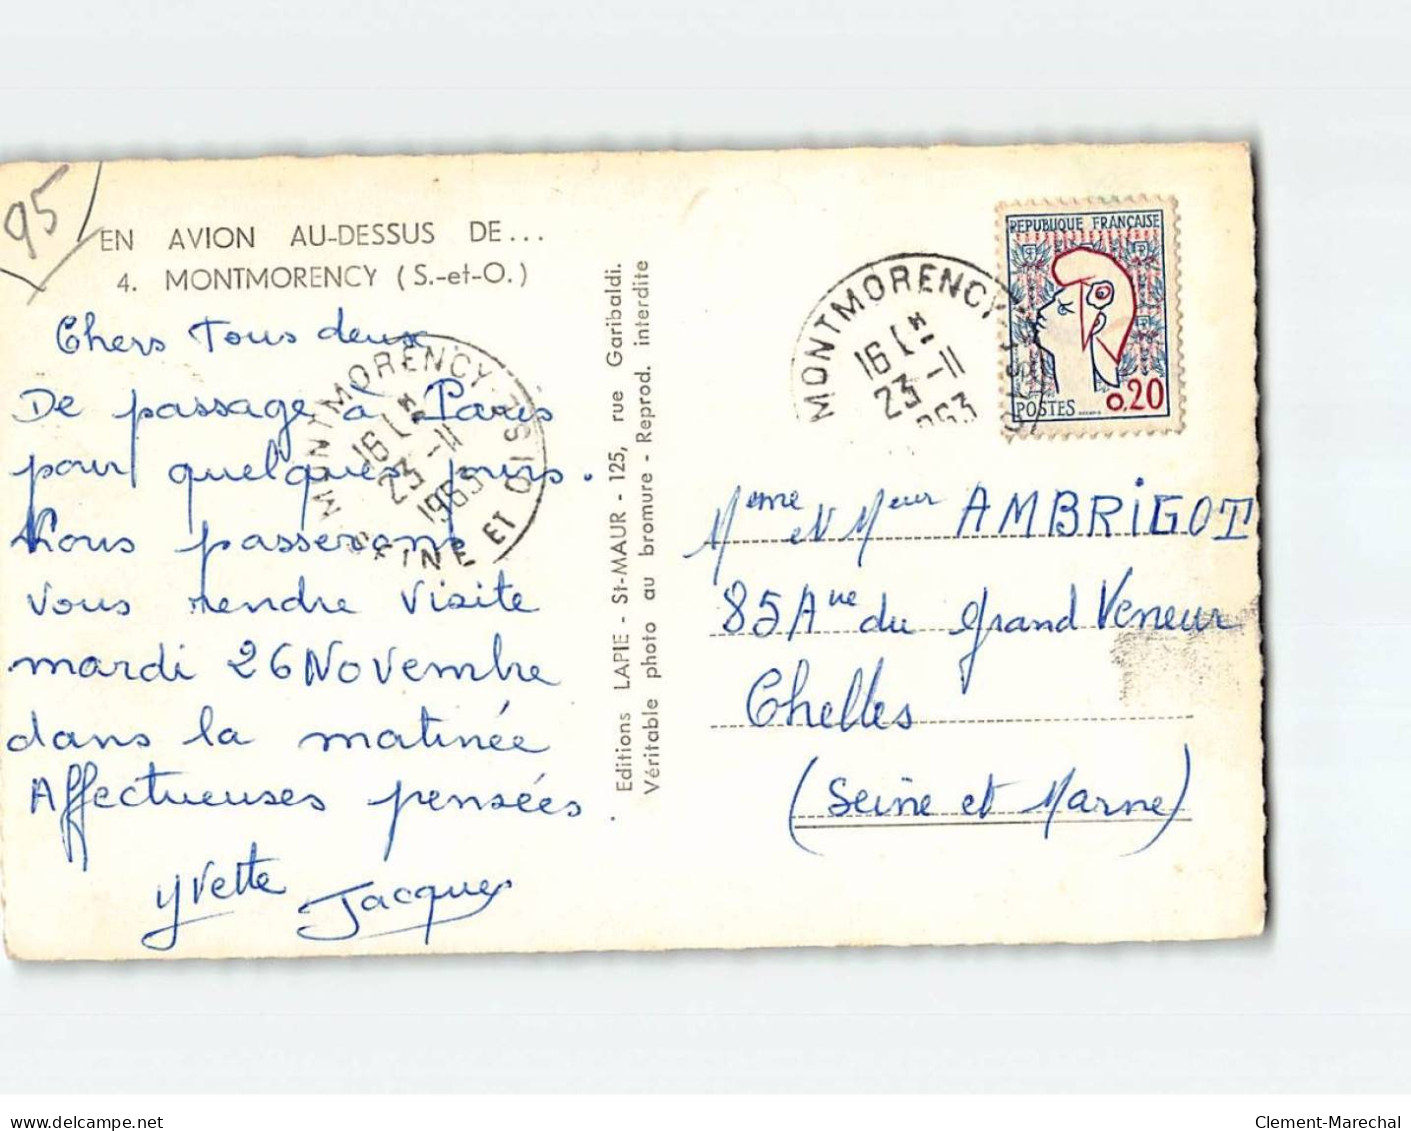 95
EN AVION AU-DESSUS DE...
4. MONTMORENCY (S.-et-O.)
Chers Tous deux
De passage à Paris
pour quelques jours.
Nous passerons
vous rendre visite
mardi 26 Novembre
dans la matinée
Affectueuses pensées.
Yvette Jacques
MONTMORENCY
16 H
23 - 11
1963
SEINE ET OISE
Editions LAPIE - St-MAUR - 125, rue Garibaldi.
Véritable photo au bromure - Reprod. interdite
MONTMORENCY
16 H
23 - 11
1963
REPUBLIQUE FRANÇAISE
POSTES 0,20
Meme et Meur AMBRIGOT
85 Aue du Grand Veneur
Chelles
(Seine et Marne)
www.delcampe.net
Clement-Marechal